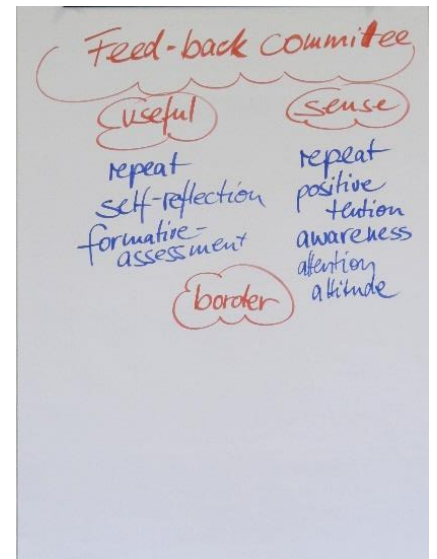 Feed-back commitee
useful
repeat
self-reflection
formative-
assessment
sense
repeat
positive
tention
awareness
attention
attitude
border